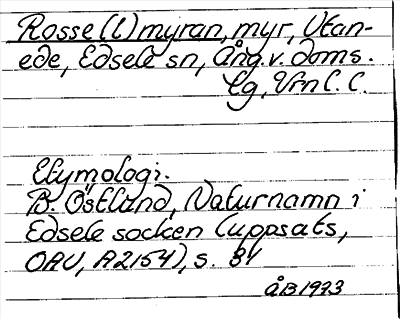 Rosse(l)myran, myr, Utan-
ede, Edsele sn, Ång. v. doms.
Lg, Vrn l. C.
Etymologi.
B. Östlund, Naturnamn i
Edsele socken (uppsats,
OAU, A2154), s. 81
ÅB 1973